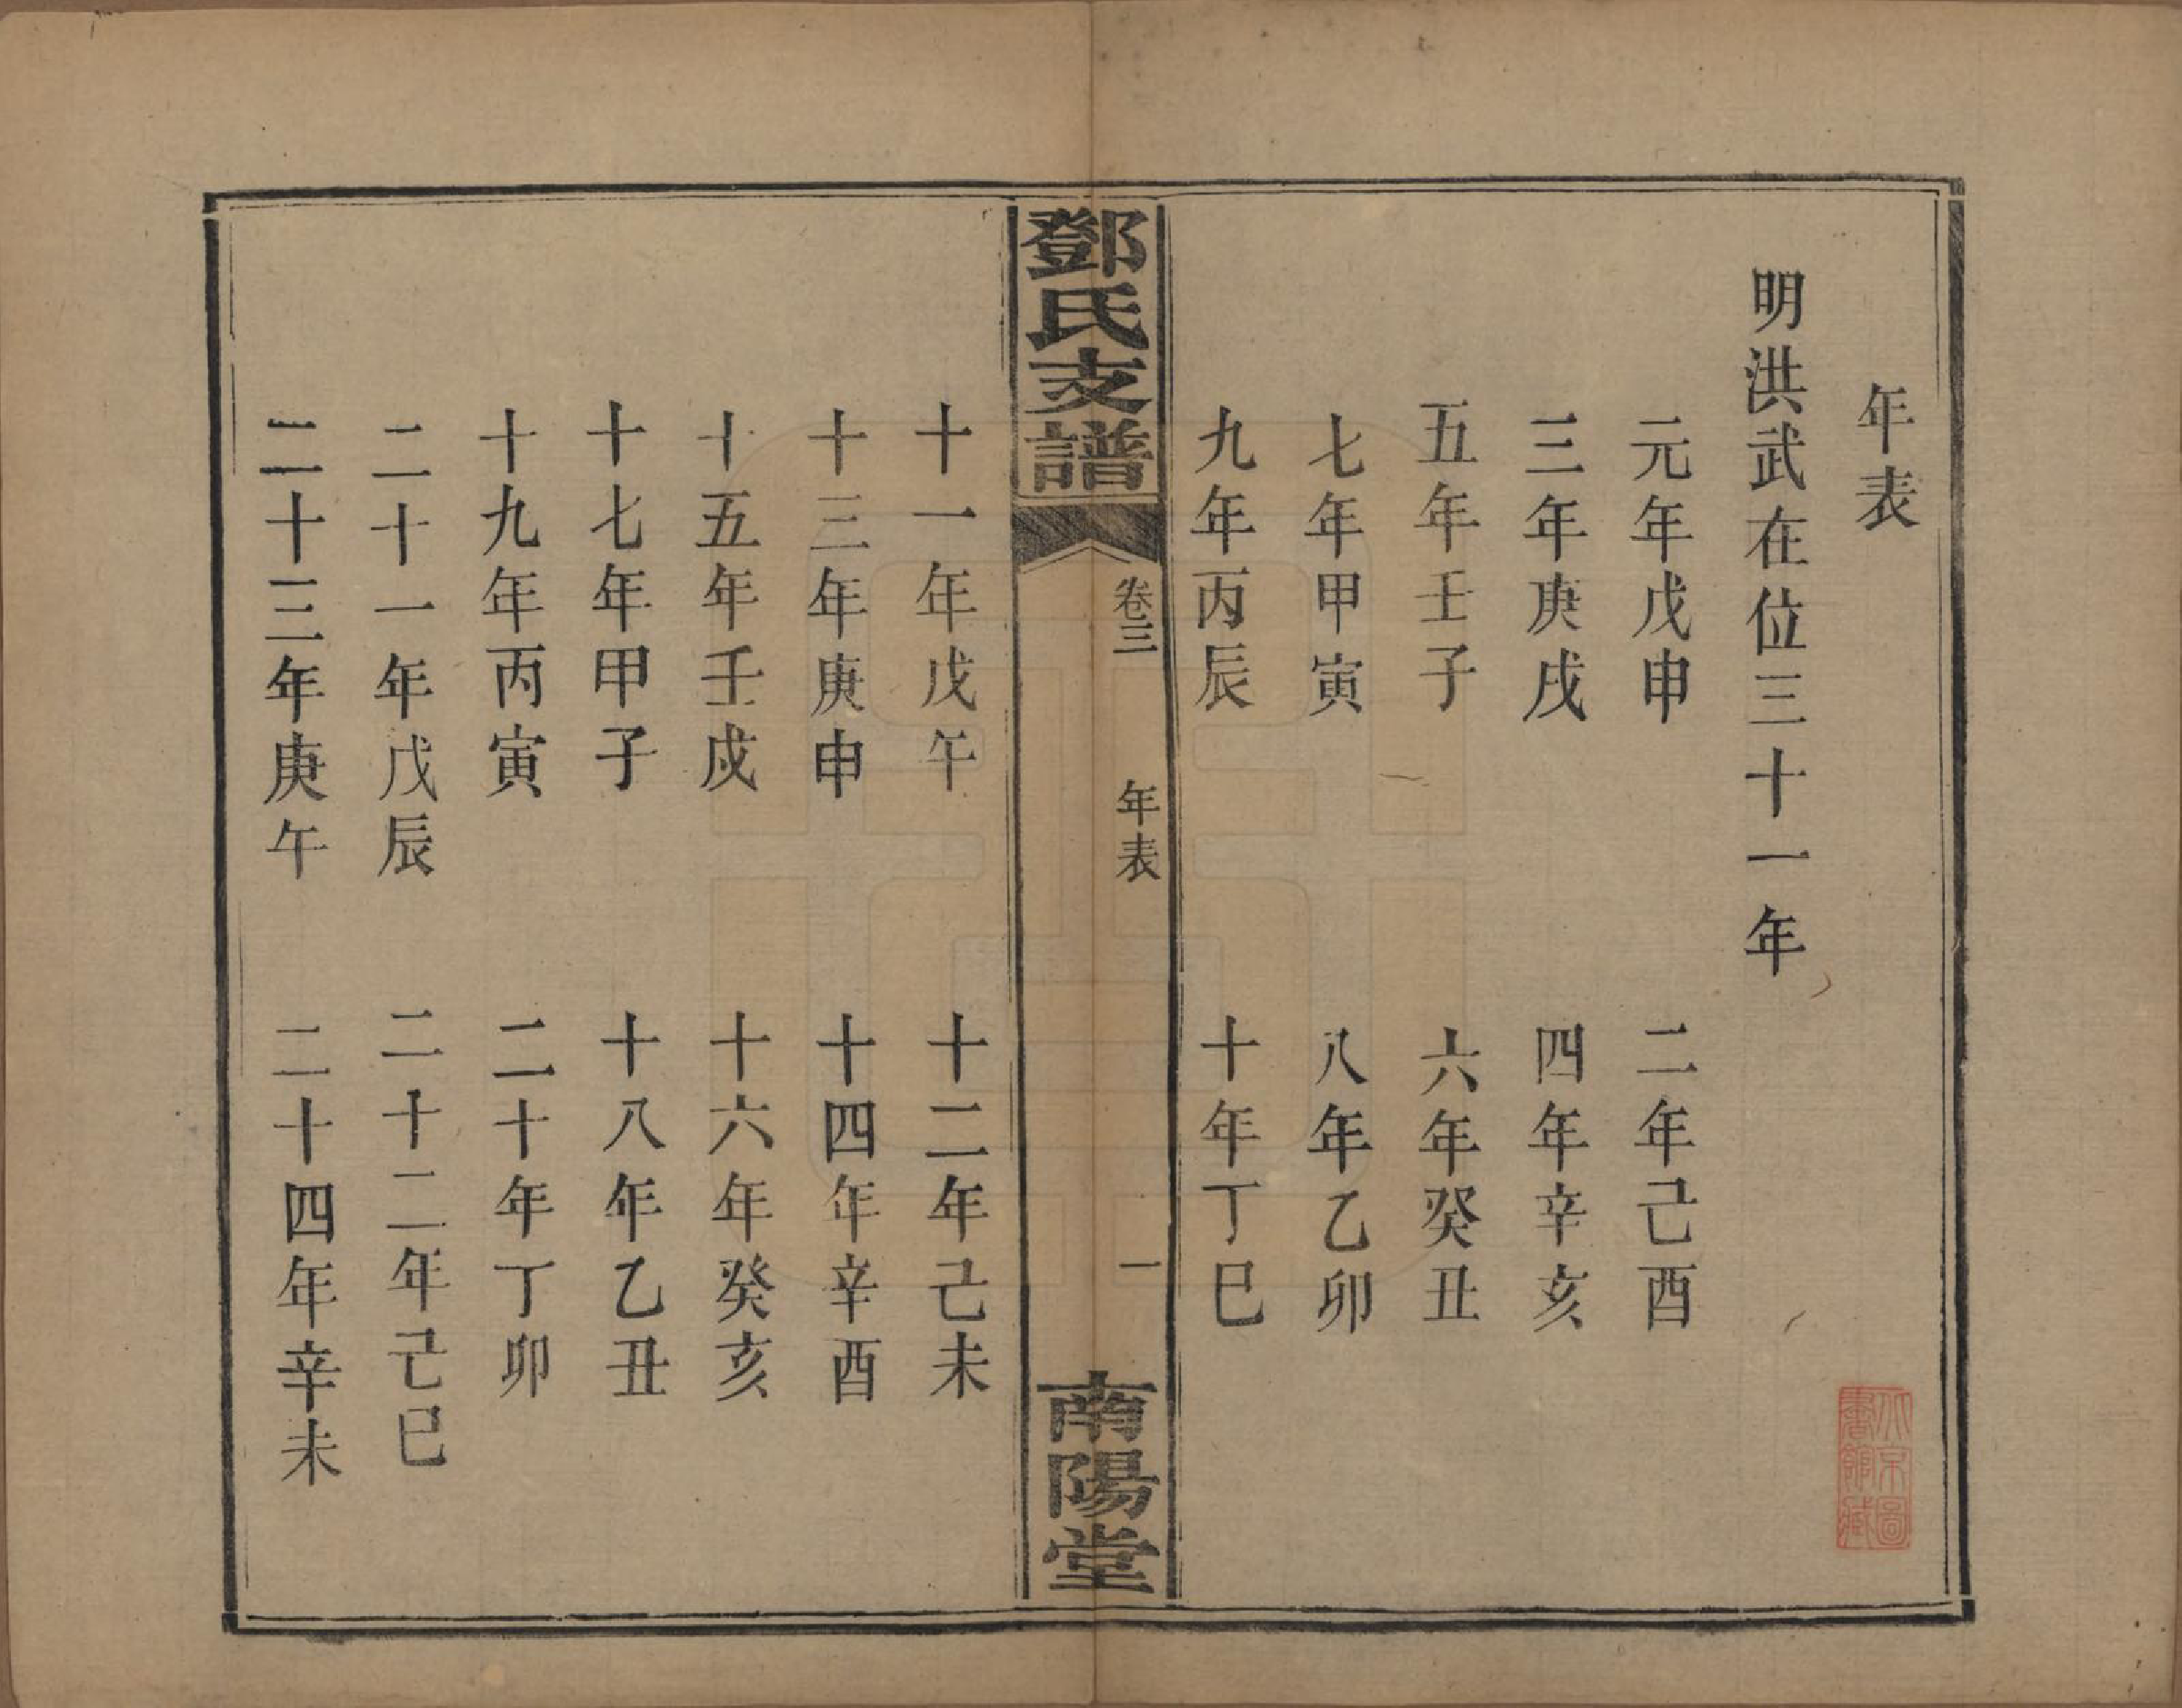 年表
明洪武在位三十一年
元年戊申 二年己酉
三年庚戌 四年辛亥
五年壬子 六年癸丑
七年甲寅 八年乙卯
九年丙辰 十年丁巳
鄧氏支譜 卷三 年表 一 南陽堂
十一年戊午 十二年己未
十三年庚申 十四年辛酉
十五年壬戌 十六年癸亥
十七年甲子 十八年乙丑
十九年丙寅 二十年丁卯
二十一年戊辰 二十二年己巳
二十三年庚午 二十四年辛未